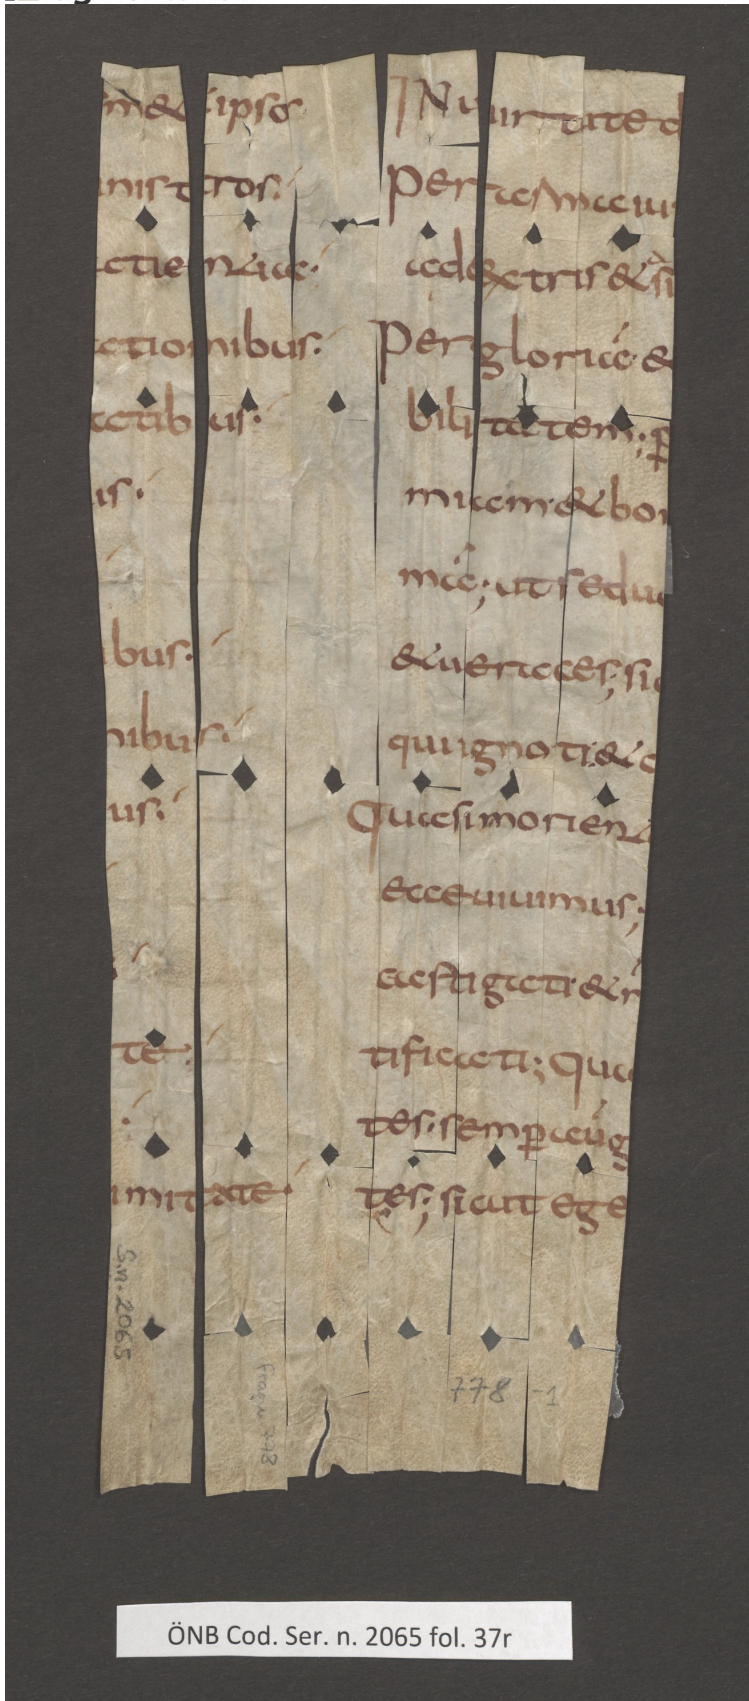 m & ipsos
nistros.
atientia.
ationibus.
tatibus.
is.
bus.
nibus.
us.
te.
imitate.
IN uirtute d
Per arma iu
a dextris & a si
Per gloriā &
bilitatem; ꝑ
miam & bon
mā; ut seduc
& ueraces; sic
qui ignoti & c
Quasi morient
ecce uiuimus;
castigati & n
tificati; Qua
tes. semꝑ aūg
tes; sicut ege
S.n. 2065
Fragm. 778
778 -1
ÖNB Cod. Ser. n. 2065 fol. 37r